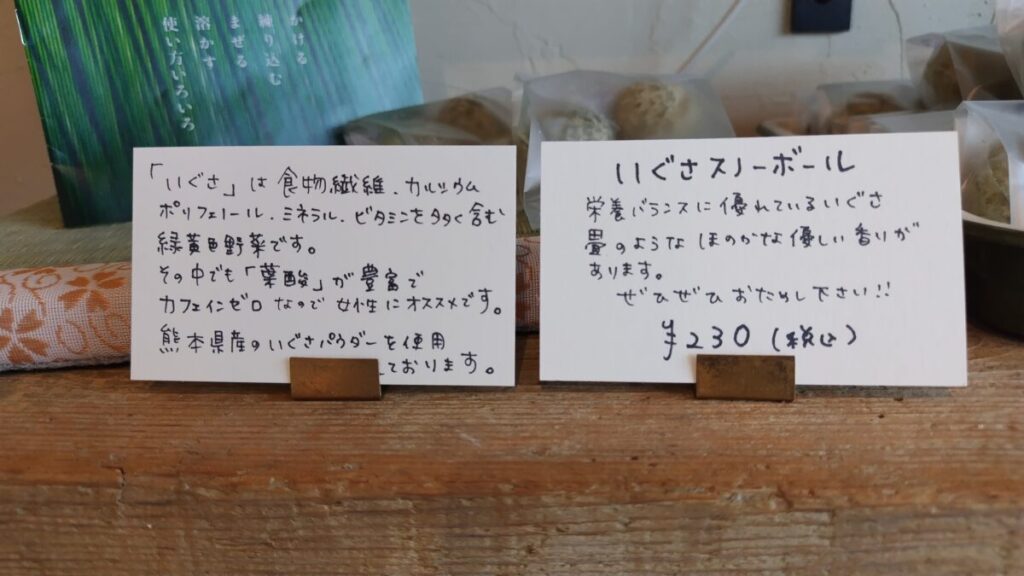 かける
練り込む
まぜる
溶かす
使い方いろいろ
「いぐさ」は食物繊維.カルシウム
ポリフェノール.ミネラル.ビタミンを多く含む
緑黄色野菜です。
その中でも「葉酸」が豊富で
カフェインゼロなので女性にオススメです。
熊本県産のいぐさパウダーを使用
ております。
いぐさスノーボール
栄養バランスに優れているいぐさ
畳のようなほのかな優しい香りが
あります。
ぜひぜひおためし下さい!!
¥230(税込)